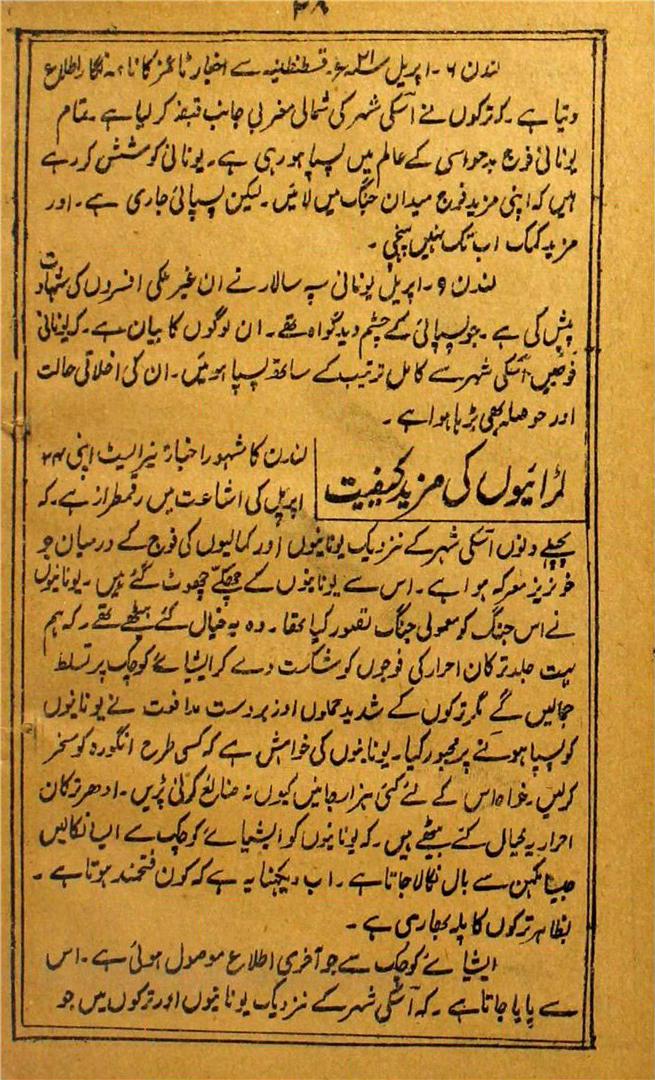 ۴۹
لندن ۶۔ اپریل ۲۱ء۔ قسطنطنیہ سے اخبار ٹائمز کا نامہ نگار اطلاع
دیتا ہے۔ کہ ترکوں نے آسکی شہر کی شمالی مغربی جانب قبضہ کر لیا ہے۔ تمام
یونانی فوج بدحواسی کے عالم میں پسپا ہو رہی ہے۔ یونانی کوشش کر رہے
ہیں کہ اپنی مزید فوج میدان جنگ میں لائیں۔ لیکن پسپائی جاری ہے۔ اور
مزید کمک اب تک نہیں پہنچی۔
لندن ۹۔ اپریل یونانی سپہ سالار نے ان غیر ملکی افسروں کی شہادت
پیش کی ہے۔ جو پسپائی کے چشم دید گواہ تھے۔ ان لوگوں کا بیان ہے۔ کہ یونانی
فوجیں آسکی شہر سے کامل ترتیب کے ساتھ پسپا ہوئیں۔ ان کی اخلاقی حالت
اور حوصلہ بھی بڑہا ہوا ہے۔
لڑائیوں کی مزید کیفیت
لندن کا مشہور اخبار نیرایسٹ اپنی ۲۴
اپریل کی اشاعت میں رقمطراز ہے۔ کہ
پچھلے دنوں آسکی شہر کے نزدیک یونانیوں اور کمالیوں کی فوج کے درمیان جو
خونریز معرکہ ہوا ہے۔ اس سے یونانیوں کے چھکے چھوٹ گئے ہیں۔ یونانیوں
نے اس جنگ کو معمولی جنگ تصور کیا تھا۔ وہ یہ خیال کئے بیٹھے تھے۔ کہ ہم
بہت جلد ترکان احرار کی فوجوں کو شکست دے کر ایشیائے کوچک پر تسلط
جمالیں گے مگر ترکوں کے شدید حملوں اور زبردست مدافعت نے یونانیوں
کو پسپا ہونے پر مجبور کیا۔ یونانیوں کی خواہش ہے کہ کسی طرح انگورہ کو مسخر
کرلیں۔ خواہ اس کے لئے کئی ہزار جانیں کیوں نہ ضائع کرنی پڑیں۔ ادھر ترکان
احرار یہ خیال کئے بیٹھے ہیں۔ کہ یونانیوں کو ایشیائے کوچک سے ایسا نکالیں
جیسا مکھن سے بال نکالا جاتا ہے۔ اب دیکھنا یہ ہے کہ کون فتحمند ہوتا ہے۔
بظاہر ترکوں کا پلہ بھاری ہے۔
ایشیائے کوچک سے جو آخری اطلاع موصول ہوئی ہے۔ اس
سے پایا جاتا ہے۔ کہ آسکی شہر کے نزدیک یونانیوں اور ترکوں میں جو